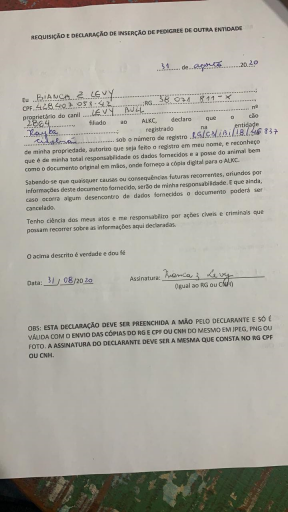 REQUISIÇÃO E DECLARAÇÃO DE INSERÇÃO DE PEDIGREE DE OUTRA ENTIDADE
31 de agosto 2020
Eu BIANCA Z LEVY,
CPF 428403051-42, RG 38 031 811-X,
proprietário do canil LEVY BULL nº
2864, filiado ao ALKC, declaro que o cão
registrado na entidade
sob o número de registro
de minha propriedade, autorizo que seja feito o registro em meu nome, e reconheço
que é de minha total responsabilidade os dados fornecidos e a posse do animal bem
como o documento original em mãos, onde forneço a cópia digital para o ALKC.
Sabendo-se que quaisquer causas ou consequências futuras recorrentes, oriundos por
informações deste documento fornecido, serão de minha responsabilidade. E que ainda,
caso ocorra algum desencontro de dados fornecidos o documento poderá ser
cancelado.
Tenho ciência dos meus atos e me responsabilizo por ações cíveis e criminais que
possam recorrer sobre as informações aqui declaradas.
O acima descrito é verdade e dou fé
Data: 31/08/2020 Assinatura: Bianca Z Levy
(Igual ao RG ou CNH)
OBS: ESTA DECLARAÇÃO DEVE SER PREENCHIDA A MÃO PELO DECLARANTE E SÓ É
VÁLIDA COM O ENVIO DAS CÓPIAS DO RG E CPF OU CNH DO MESMO EM JPEG, PNG OU
FOTO. A ASSINATURA DO DECLARANTE DEVE SER A MESMA QUE CONSTA NO RG CPF
OU CNH.